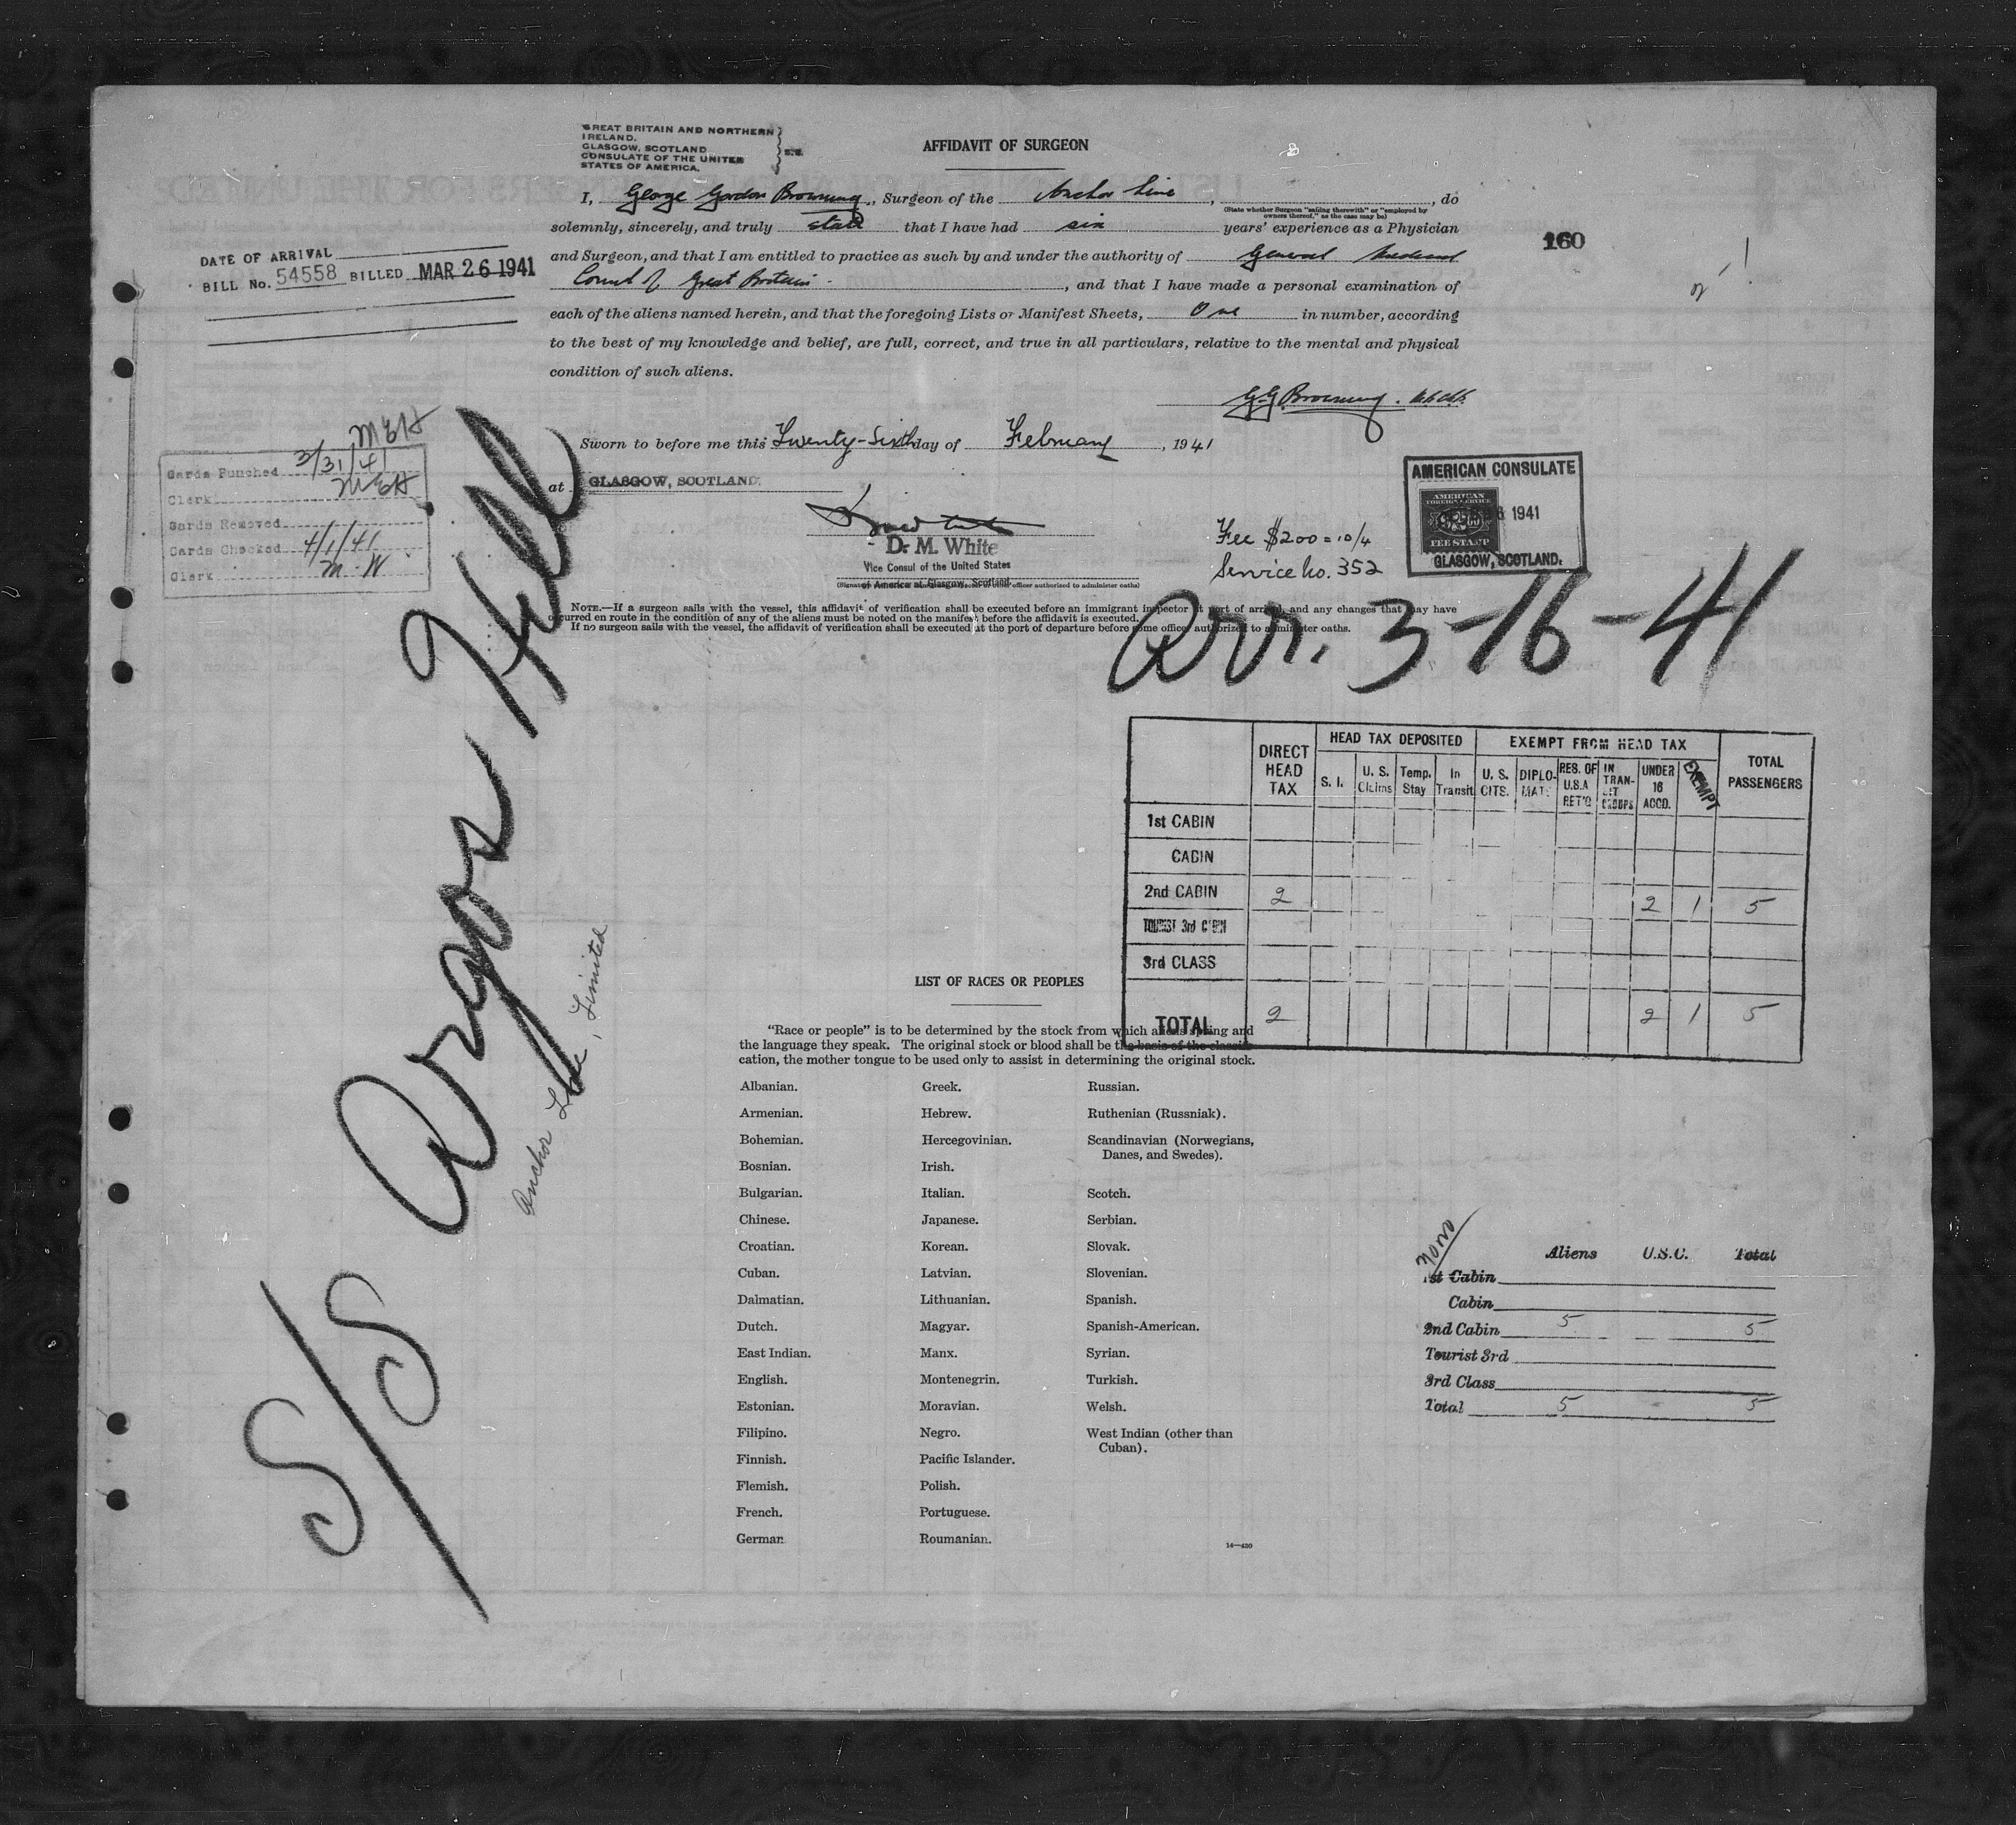 GREAT BRITAIN AND NORTHERN
IRELAND.
GLASGOW, SCOTLAND
CONSULATE OF THE UNITED
STATES OF AMERICA.
S.S.
AFFIDAVIT OF SURGEON
I, George Gordon Browning, Surgeon of the Anchor Line, , do
(State whether Surgeon "sailing therewith" or "employed by
owners thereof," as the case may be)
solemnly, sincerely, and truly state that I have had six years' experience as a Physician
and Surgeon, and that I am entitled to practice as such by and under the authority of General Medical
Council of Great Britain. , and that I have made a personal examination of
each of the aliens named herein, and that the foregoing Lists or Manifest Sheets, One in number, according
to the best of my knowledge and belief, are full, correct, and true in all particulars, relative to the mental and physical
condition of such aliens.
160
DATE OF ARRIVAL
BILL No. 54558 BILLED MAR 26 1941
G.G. Browning.
Sworn to before me this Twenty-Sixth day of February, 1941
at GLASGOW, SCOTLAND.
D. M. White
Vice Consul of the United States
of America at Glasgow, Scotland
officer authorized to administer oaths)
Fee $2.00 = 10/4
Service No. 352
AMERICAN CONSULATE
AMERICAN
FOREIGN SERVICE
1941
FEE STAMP
GLASGOW, SCOTLAND.
MEH
Cards Punched 3/31/41
Clerk MEH
Cards Removed
Cards Checked 4/1/41
Clerk M. W
NOTE.—If a surgeon sails with the vessel, this affidavit of verification shall be executed before an immigrant inspector at port of arrival, and any changes that may have
occurred en route in the condition of any of the aliens must be noted on the manifest before the affidavit is executed.
If no surgeon sails with the vessel, the affidavit of verification shall be executed at the port of departure before some officer authorized to administer oaths.
Arr. 3-16-41
S/S Argos Hill
Anchor Line, Limited
DIRECT HEAD TAX HEAD TAX DEPOSITED EXEMPT FROM HEAD TAX TOTAL PASSENGERS
S. I. U. S. Claims Temp. Stay In Transit U. S. CITS. DIPLOMAT. RES. OF U.S.A RET'G IN TRANSIT GROUPS UNDER 16 ACCD. EXEMPT
1st CABIN
CABIN
2nd CABIN 2 2 1 5
TOURIST 3rd CABIN
3rd CLASS
TOTAL 2 2 1 5
LIST OF RACES OR PEOPLES
"Race or people" is to be determined by the stock from which aliens spring and
the language they speak. The original stock or blood shall be the basis of the classifi-
cation, the mother tongue to be used only to assist in determining the original stock.
Albanian. Greek. Russian.
Armenian. Hebrew. Ruthenian (Russniak).
Bohemian. Hercegovinian. Scandinavian (Norwegians,
Danes, and Swedes).
Bosnian. Irish.
Bulgarian. Italian. Scotch.
Chinese. Japanese. Serbian.
Croatian. Korean. Slovak.
Cuban. Latvian. Slovenian.
Dalmatian. Lithuanian. Spanish.
Dutch. Magyar. Spanish-American.
East Indian. Manx. Syrian.
English. Montenegrin. Turkish.
Estonian. Moravian. Welsh.
Filipino. Negro. West Indian (other than
Cuban).
Finnish. Pacific Islander.
Flemish. Polish.
French. Portuguese.
German. Roumanian.
14—430
Aliens U.S.C. Total
1st Cabin
Cabin
2nd Cabin 5 5
Tourist 3rd
3rd Class
Total 5 5